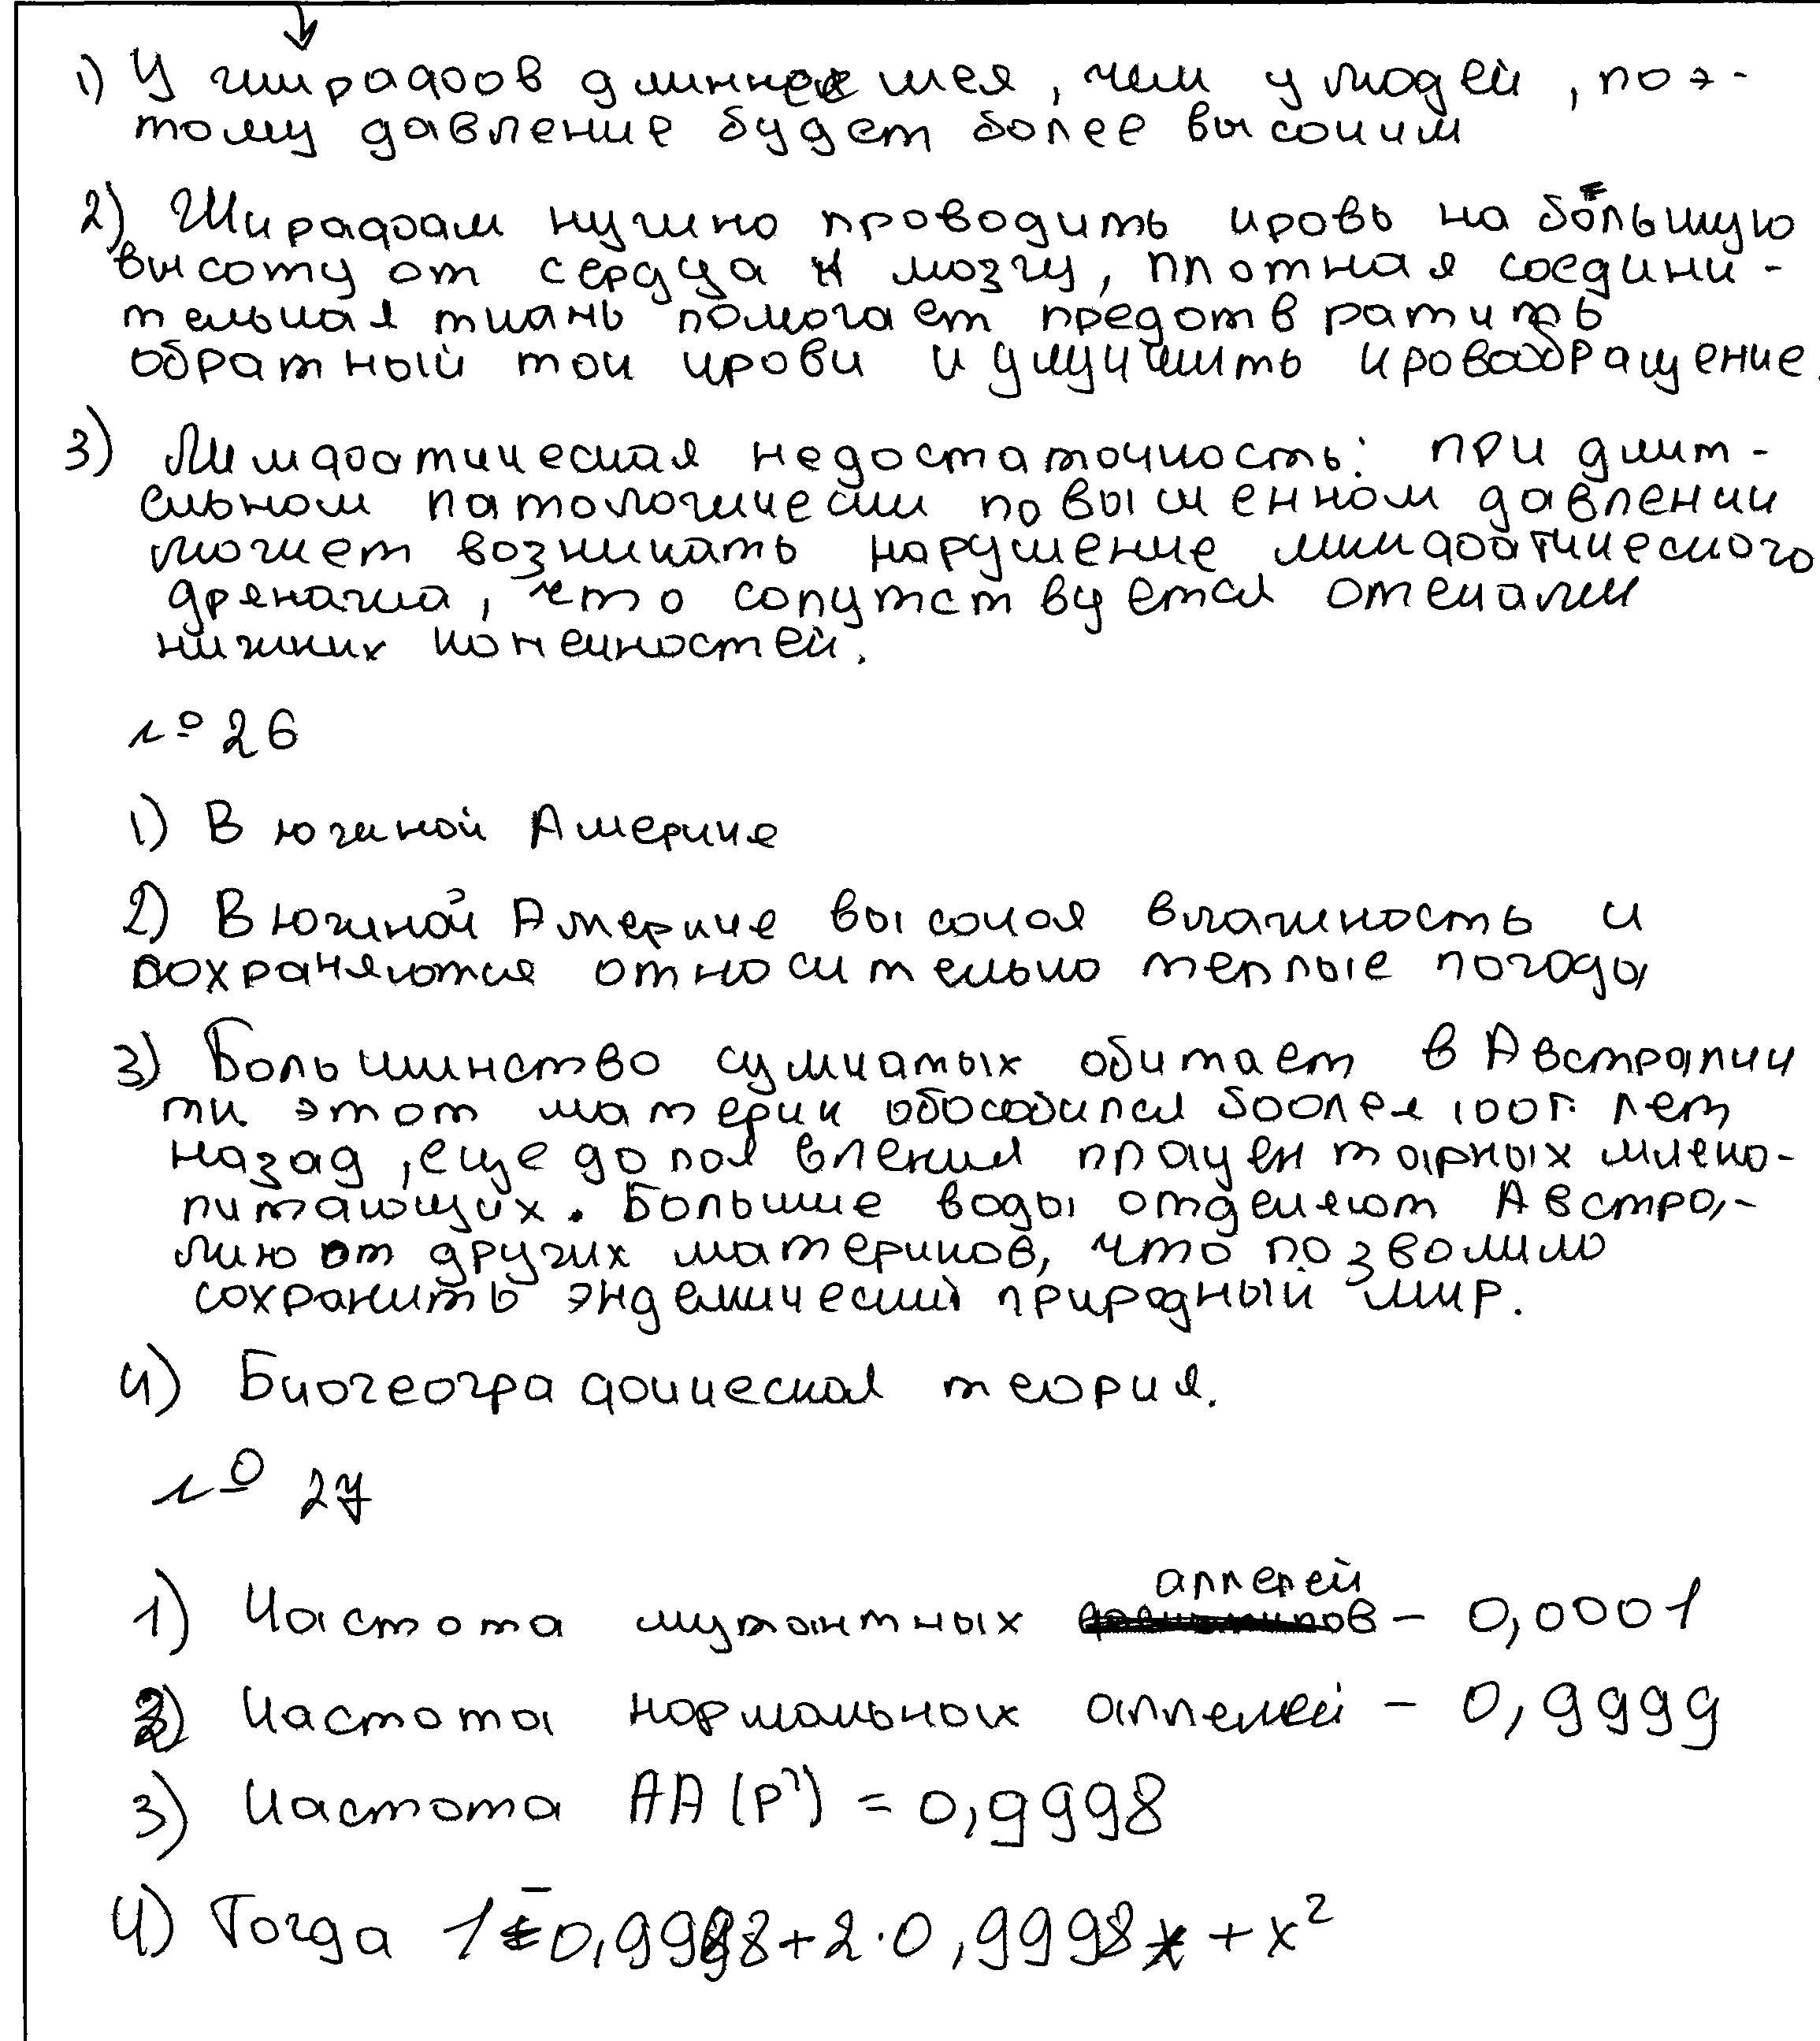 1) У жирафов длиннее шея, чем у людей, поэ-
тому давление будет более высоким
2) Жирафам нужно проводить кровь на большую
высоту от сердца к мозгу, плотная соедини-
тельная ткань помогает предотвратить
обратный ток крови и улучшить кровообращение.
3) Лимфатическая недостаточность: при длит-
ельном патологически повышенном давлении
может возникать нарушение лимфатического
дренажа, что сопутствуется отеками
нижних конечностей.
№ 26
1) В южной Америке
2) В южной Америке высокая влажность и
сохраняются относительно теплые погоды
3) Большинство сумчатых обитает в Австралии
тк этот материк обособился боолее 100т. лет
назад, еще до появления плацентарных млеко-
питающих. Большие воды отделяют Австра-
лию от других материков, что позволило
сохранить эндемический природный мир.
4) Биогеографическая теория.
№ 27
1) Частота мутантных аллелей – 0,0001
2) Частота нормальных аллелей – 0,9999
3) Частота AA (p²) = 0,9998
4) Тогда 1 = 0,9998 + 2·0,9998x + x²